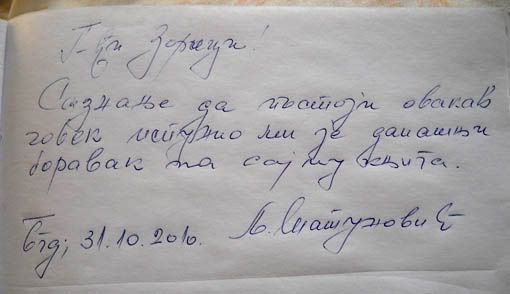 Г-ђи Зорици!
Сазнање да постоји овакав
човек испунио ми је данашњи
боравак на сајму књига.
Бгд; 31.10.2010.